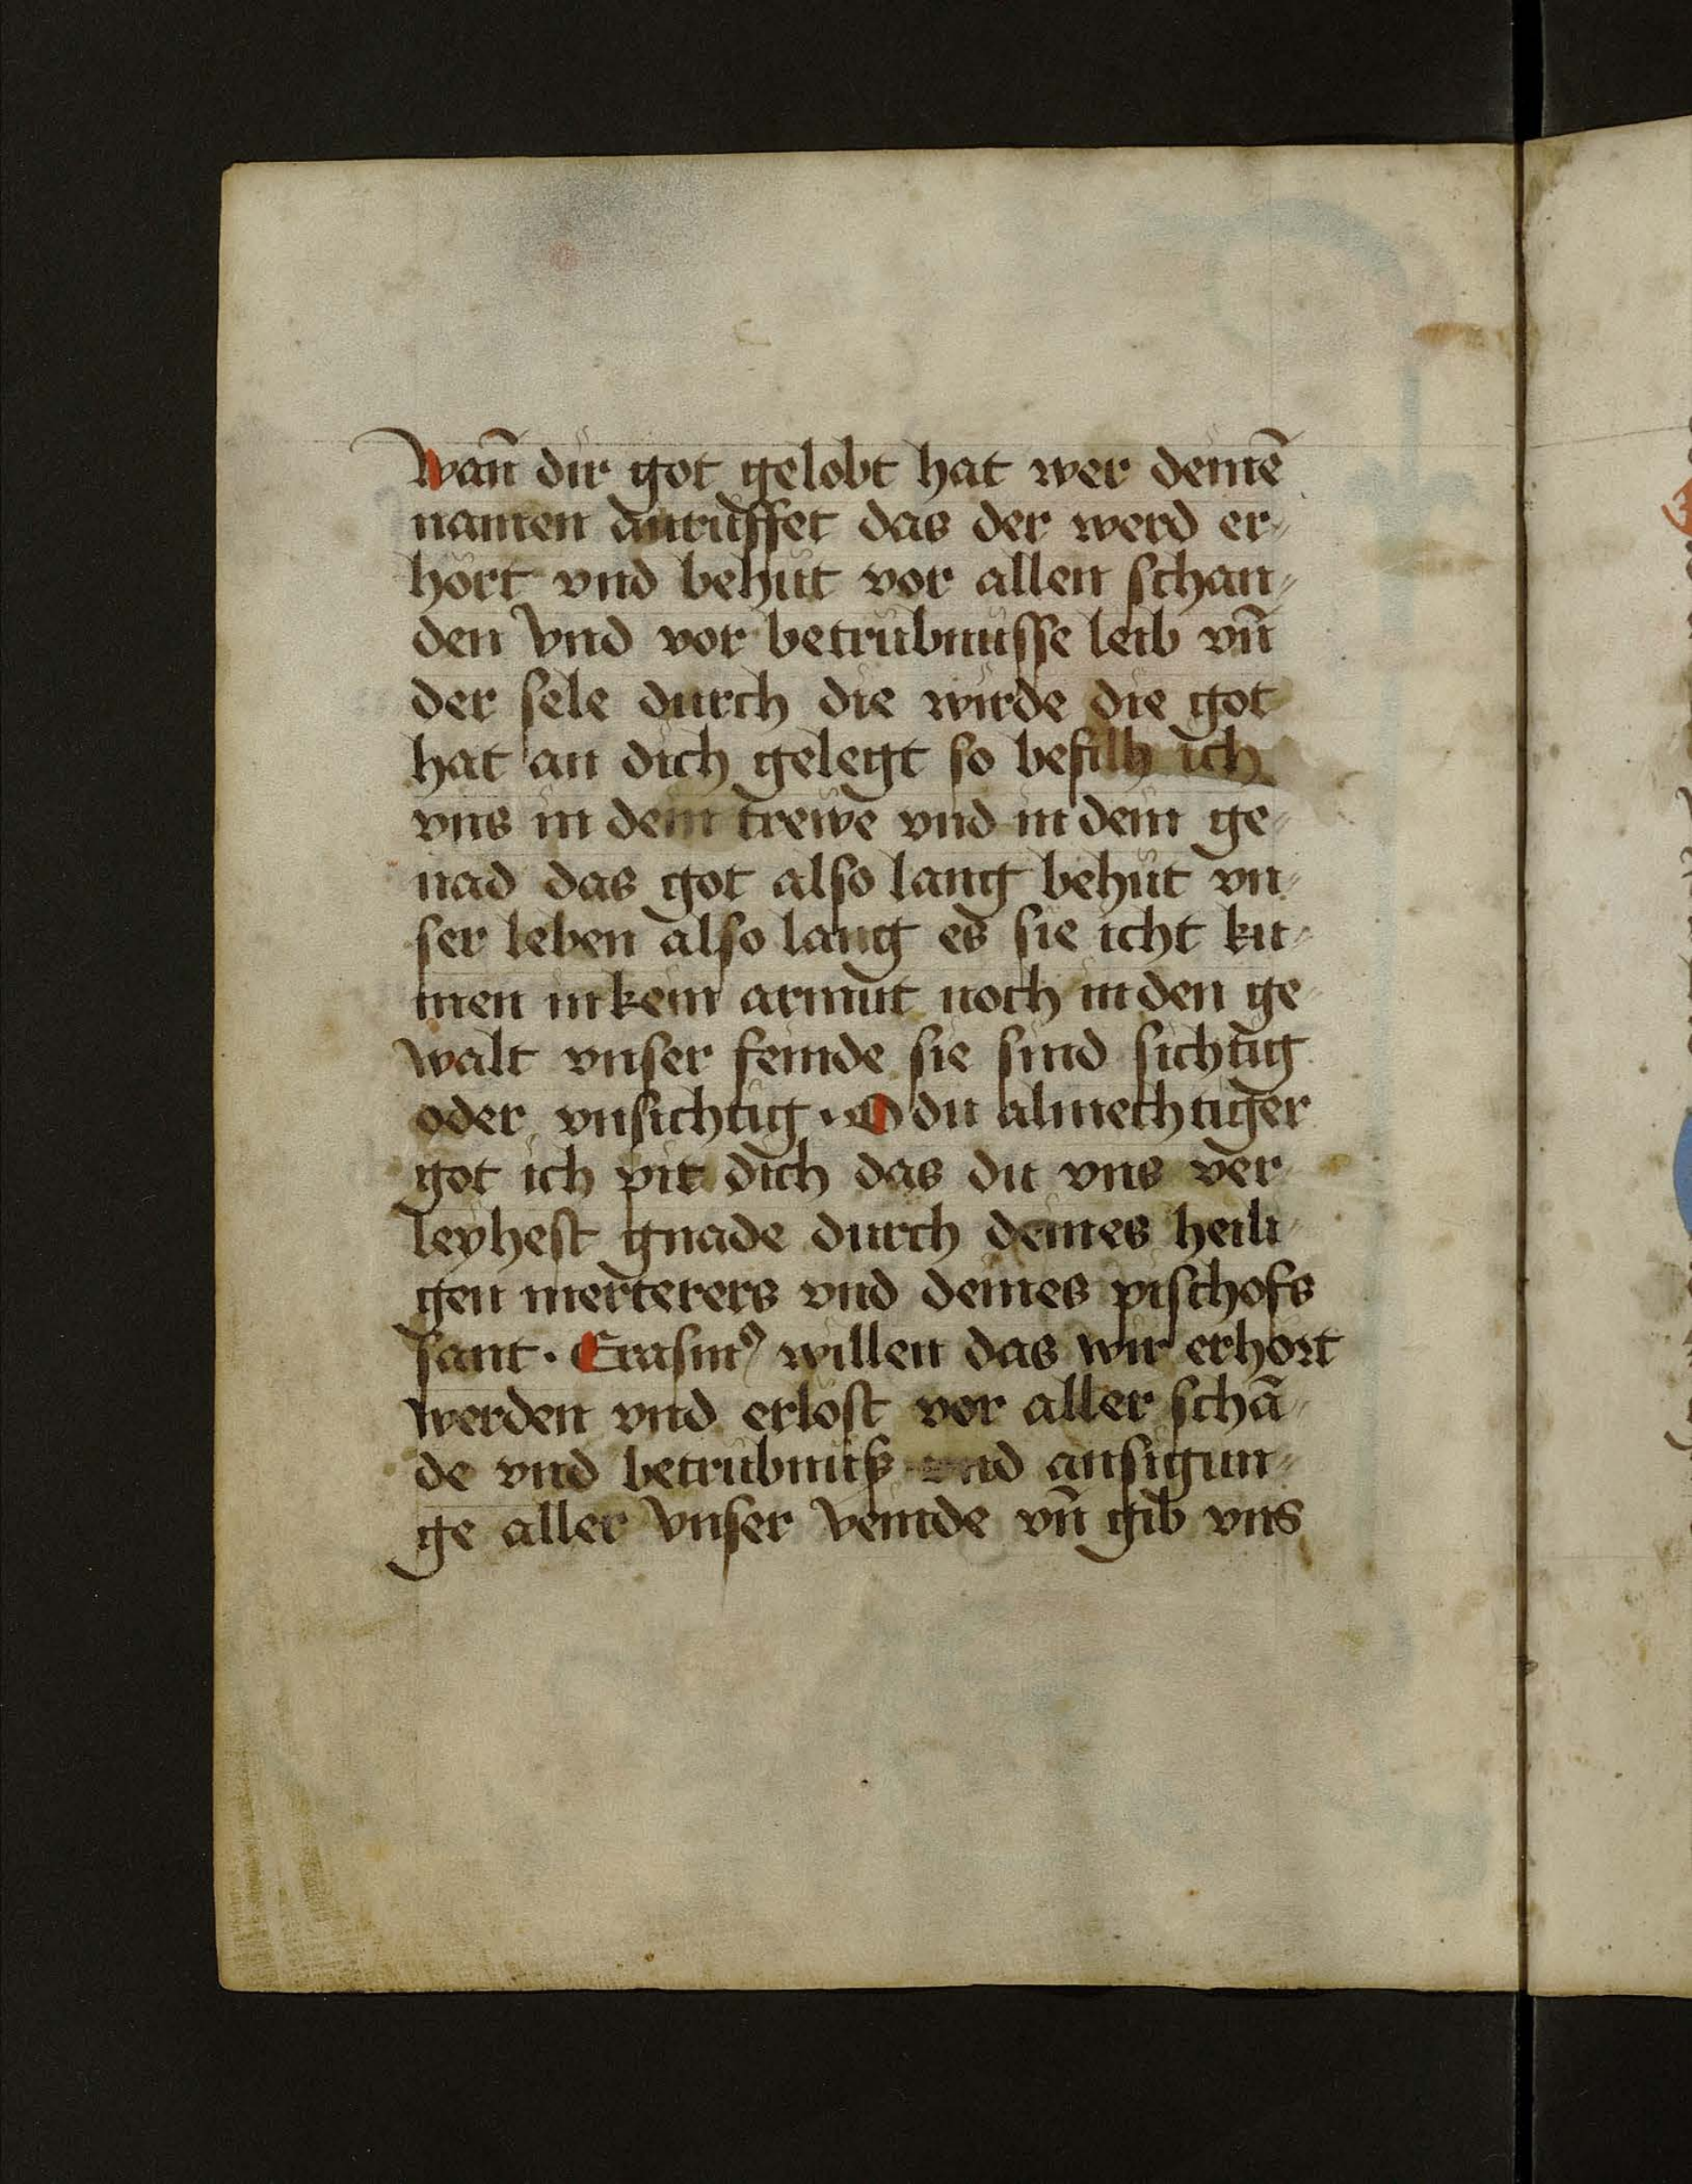 Wan̄ dir got gelobt hat wer deinē
namen anrüffet das der werd er⸗
hört vnd behüt vor allen schan⸗
den Vnd vor betrübnüsse leib vn̄
der sele durch die wirde die got
hat an dich gelegt so befilh ich
vns in dein trewe vnd in dein ge⸗
nad das got also lang behüt vn⸗
ser leben also lang es sie icht ku⸗
men in kein armut noch in den ge⸗
walt vnser feinde sie sind sichtig
oder vnsichtig · O du almechtiger
got ich pit dich das du vns ver⸗
leyhest gnade durch deines heili⸗
gen merterers vnd deines pischofs
sant · Erasmꝰ willen das wir erhört
werden vnd erlöst vor aller schā⸗
de vnd betrübnüß vnd ansigun⸗
ge aller Vnser Veinde vn̄ gib vns